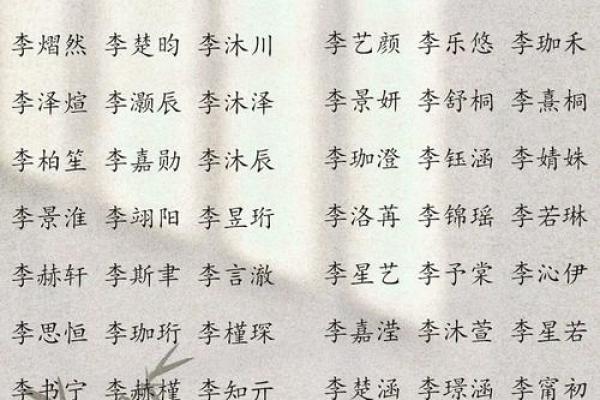 李熠然 李楚昀 李沐川 李艺颜 李乐悠 李珈禾
李泽煊 李灏辰 李沐泽 李景妍 李舒桐 李熹桐
李柏笙 李嘉勋 李沐辰 李珈澄 李钰涵 李婧姝
李景淮 李翊阳 李昱珩 李洛苒 李锦瑶 李若琳
李赫轩 李斯聿 李言澈 李星艺 李予棠 李沁伊
李思恒 李珈珩 李槿琛 李嘉滢 李沐萱 李星若
李书宁 李赫槿 李知亓 李楚涵 李璟涵 李甯初